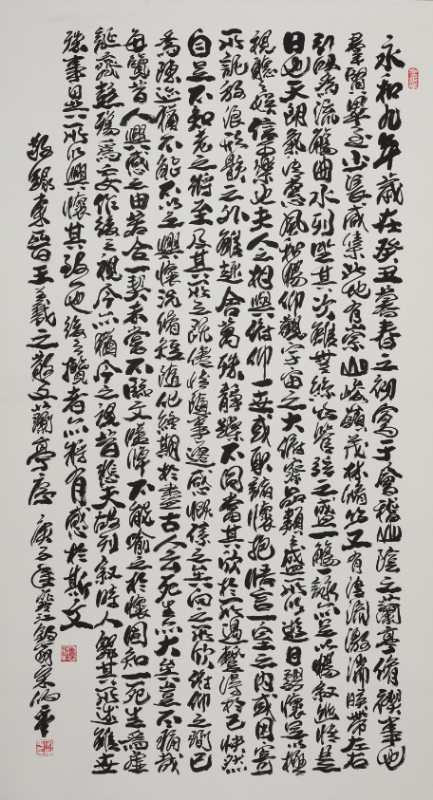 永和九年歲在癸丑暮春之初會于會稽山陰之蘭亭修禊事也
羣賢畢至少長咸集此地有崇山峻嶺茂林修竹又有清流激湍映帶左右
引以為流觴曲水列坐其次雖無絲竹管弦之盛一觴一詠亦足以暢敘幽情是
日也天朗氣清惠風和暢仰觀宇宙之大俯察品類之盛所以遊目騁懷足以極
視聽之娛信可樂也夫人之相與俯仰一世或取諸懷抱悟言一室之內或因寄
所託放浪形骸之外雖趣舍萬殊靜躁不同當其欣於所遇暫得於己快然
自足不知老之將至及其所之既倦情隨事遷感慨係之矣向之所欣俯仰之間已
為陳迹猶不能不以之興懷況修短隨化終期於盡古人云死生亦大矣豈不痛哉
每覽昔人興感之由若合一契未嘗不臨文嗟悼不能喻之於懷固知一死生為虛
誕齊彭殤為妄作後之視今亦猶今之視昔悲夫故列敘時人錄其所述雖世
殊事異所以興懷其致一也後之攬者亦將有感於斯文
敬錄東晉王羲之散文蘭亭序